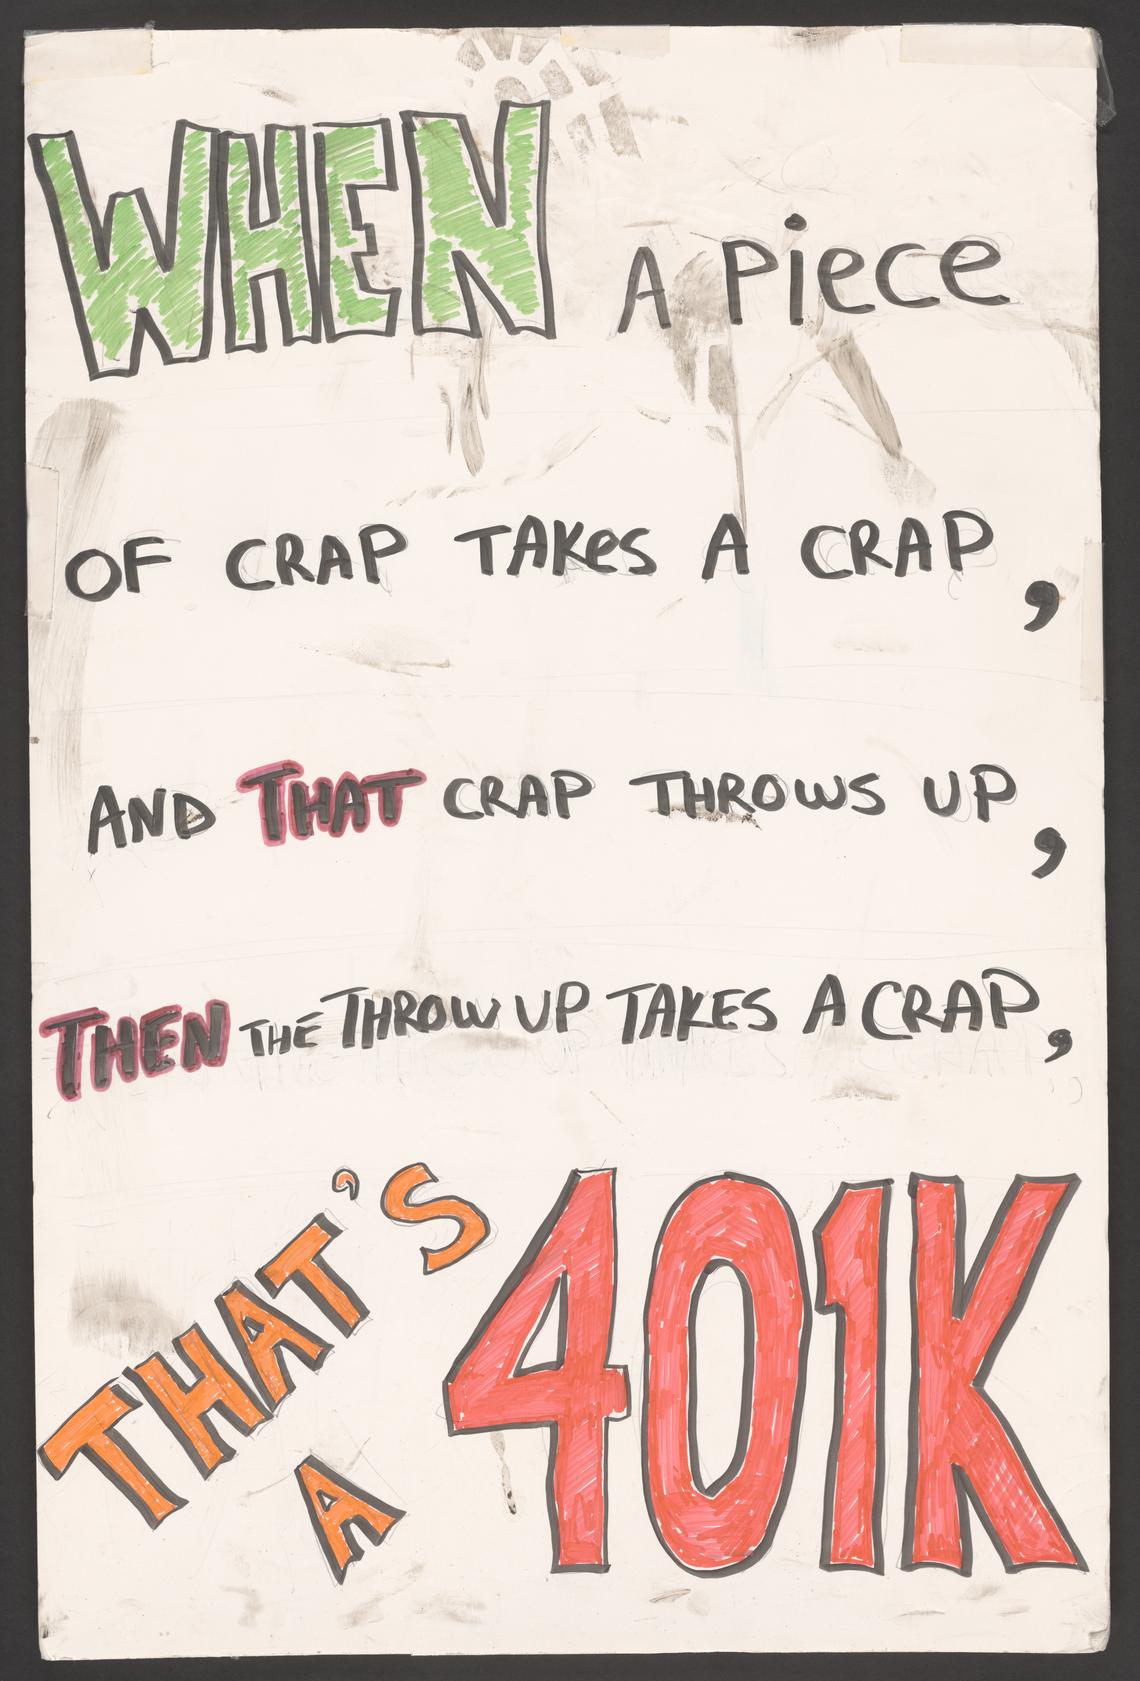 WHEN A Piece
OF CRAP TAKes A CRAP,
AND THAT CRAP THROWS UP,
THEN THE THROW UP TAKES A CRAP,
THAT'S
A
401K